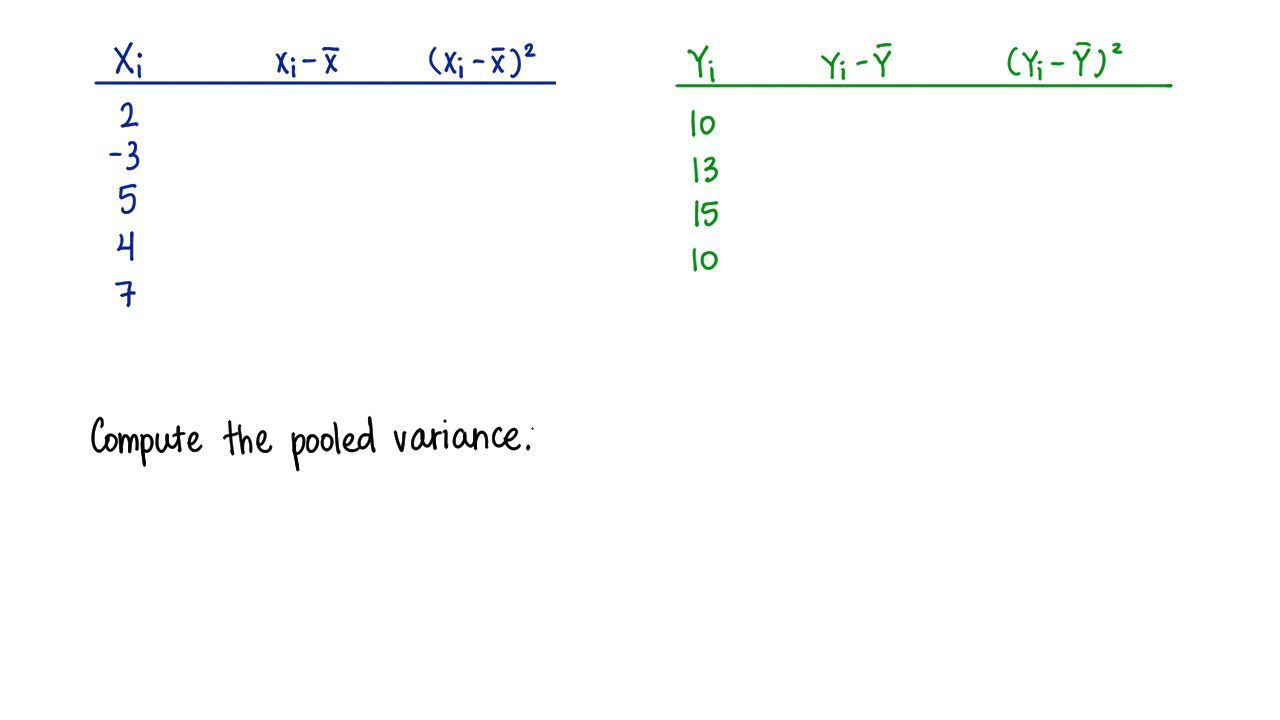 Xi xi - x̄ (xi - x̄)²
2
-3
5
4
7
Yi Yi - Ȳ (Yi - Ȳ)²
10
13
15
10
Compute the pooled variance.